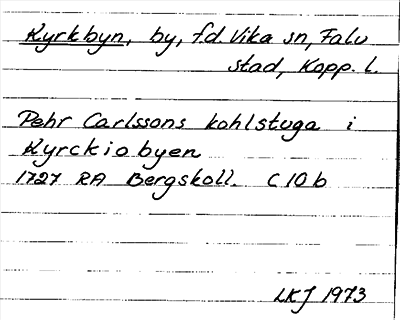 Kyrkbyn, by, f.d. Vika sn, Falu
stad, Kopp. l.
Pehr Carlssons kohlstuga i
Kyrckiobyen
1727 RA Bergskoll. C 10 b
LKJ 1973